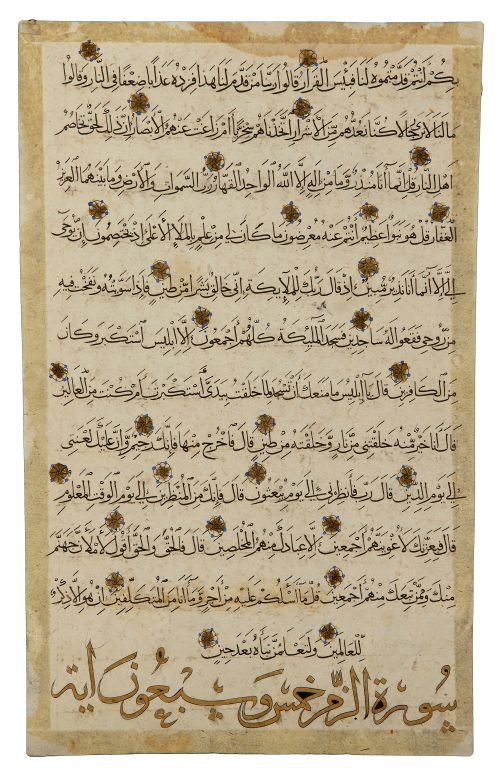 بكم أنتم قدمتموه لنا فبئس القرار قالوا ربنا من قدم لنا هذا فزده عذابا ضعفا في النار وقالوا
ما لنا لا نرى رجالا كنا نعدهم من الأشرار أتخذناهم سخريا أم زاغت عنهم الأبصار إن ذلك لحق تخاصم
أهل النار قل إنما أنا منذر وما من إله إلا الله الواحد القهار رب السموات والأرض وما بينهما العزيز
الغفار قل هو نبؤا عظيم أنتم عنه معرضون ما كان لي من علم بالملإ الأعلى إذ يختصمون إن يوحى
إلي إلا أنما أنا نذير مبين إذ قال ربك للملايكة إني خالق بشرا من طين فإذا سويته ونفخت فيه
من روحي فقعوا له ساجدين فسجد الملئكة كلهم أجمعون إلا إبليس استكبر وكان
من الكافرين قال يا إبليس ما منعك أن تسجد لما خلقت بيدي أستكبرت أم كنت من العالين
قال أنا خير منه خلقتني من نار وخلقته من طين قال فاخرج منها فإنك رجيم وإن عليك لعنتي
إلى يوم الدين قال رب فأنظرني إلى يوم يبعثون قال فإنك من المنظرين إلى يوم الوقت المعلوم
قال فبعزتك لأغوينهم أجمعين إلا عبادك منهم المخلصين قال فالحق والحق أقول لأملأن جهنم
منك وممن تبعك منهم أجمعين قل ما أسئلكم عليه من أجر وما أنا من المتكلفين إن هو إلا ذكر
للعالمين ولتعلمن نبأه بعد حين
سورة الزمر خمس وسبعون آية